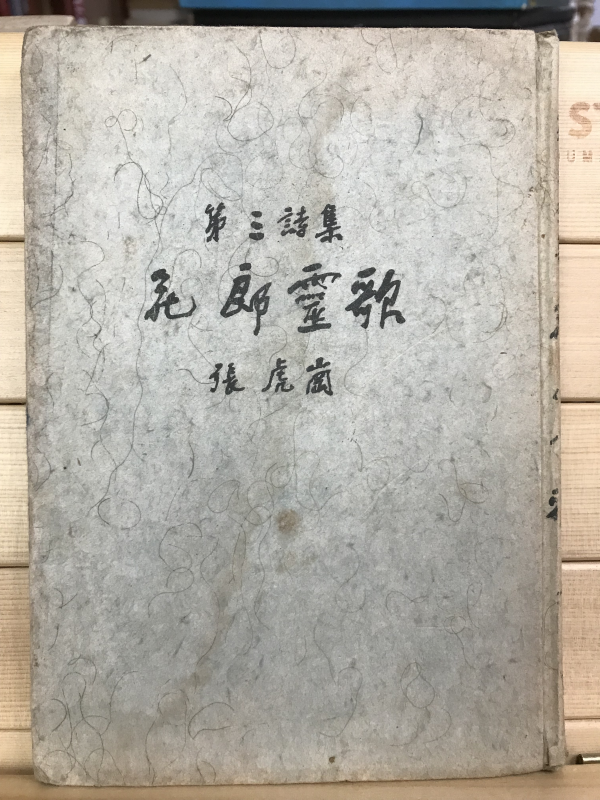 第三詩集
花郎靈歌
張虎崗
ST
UM